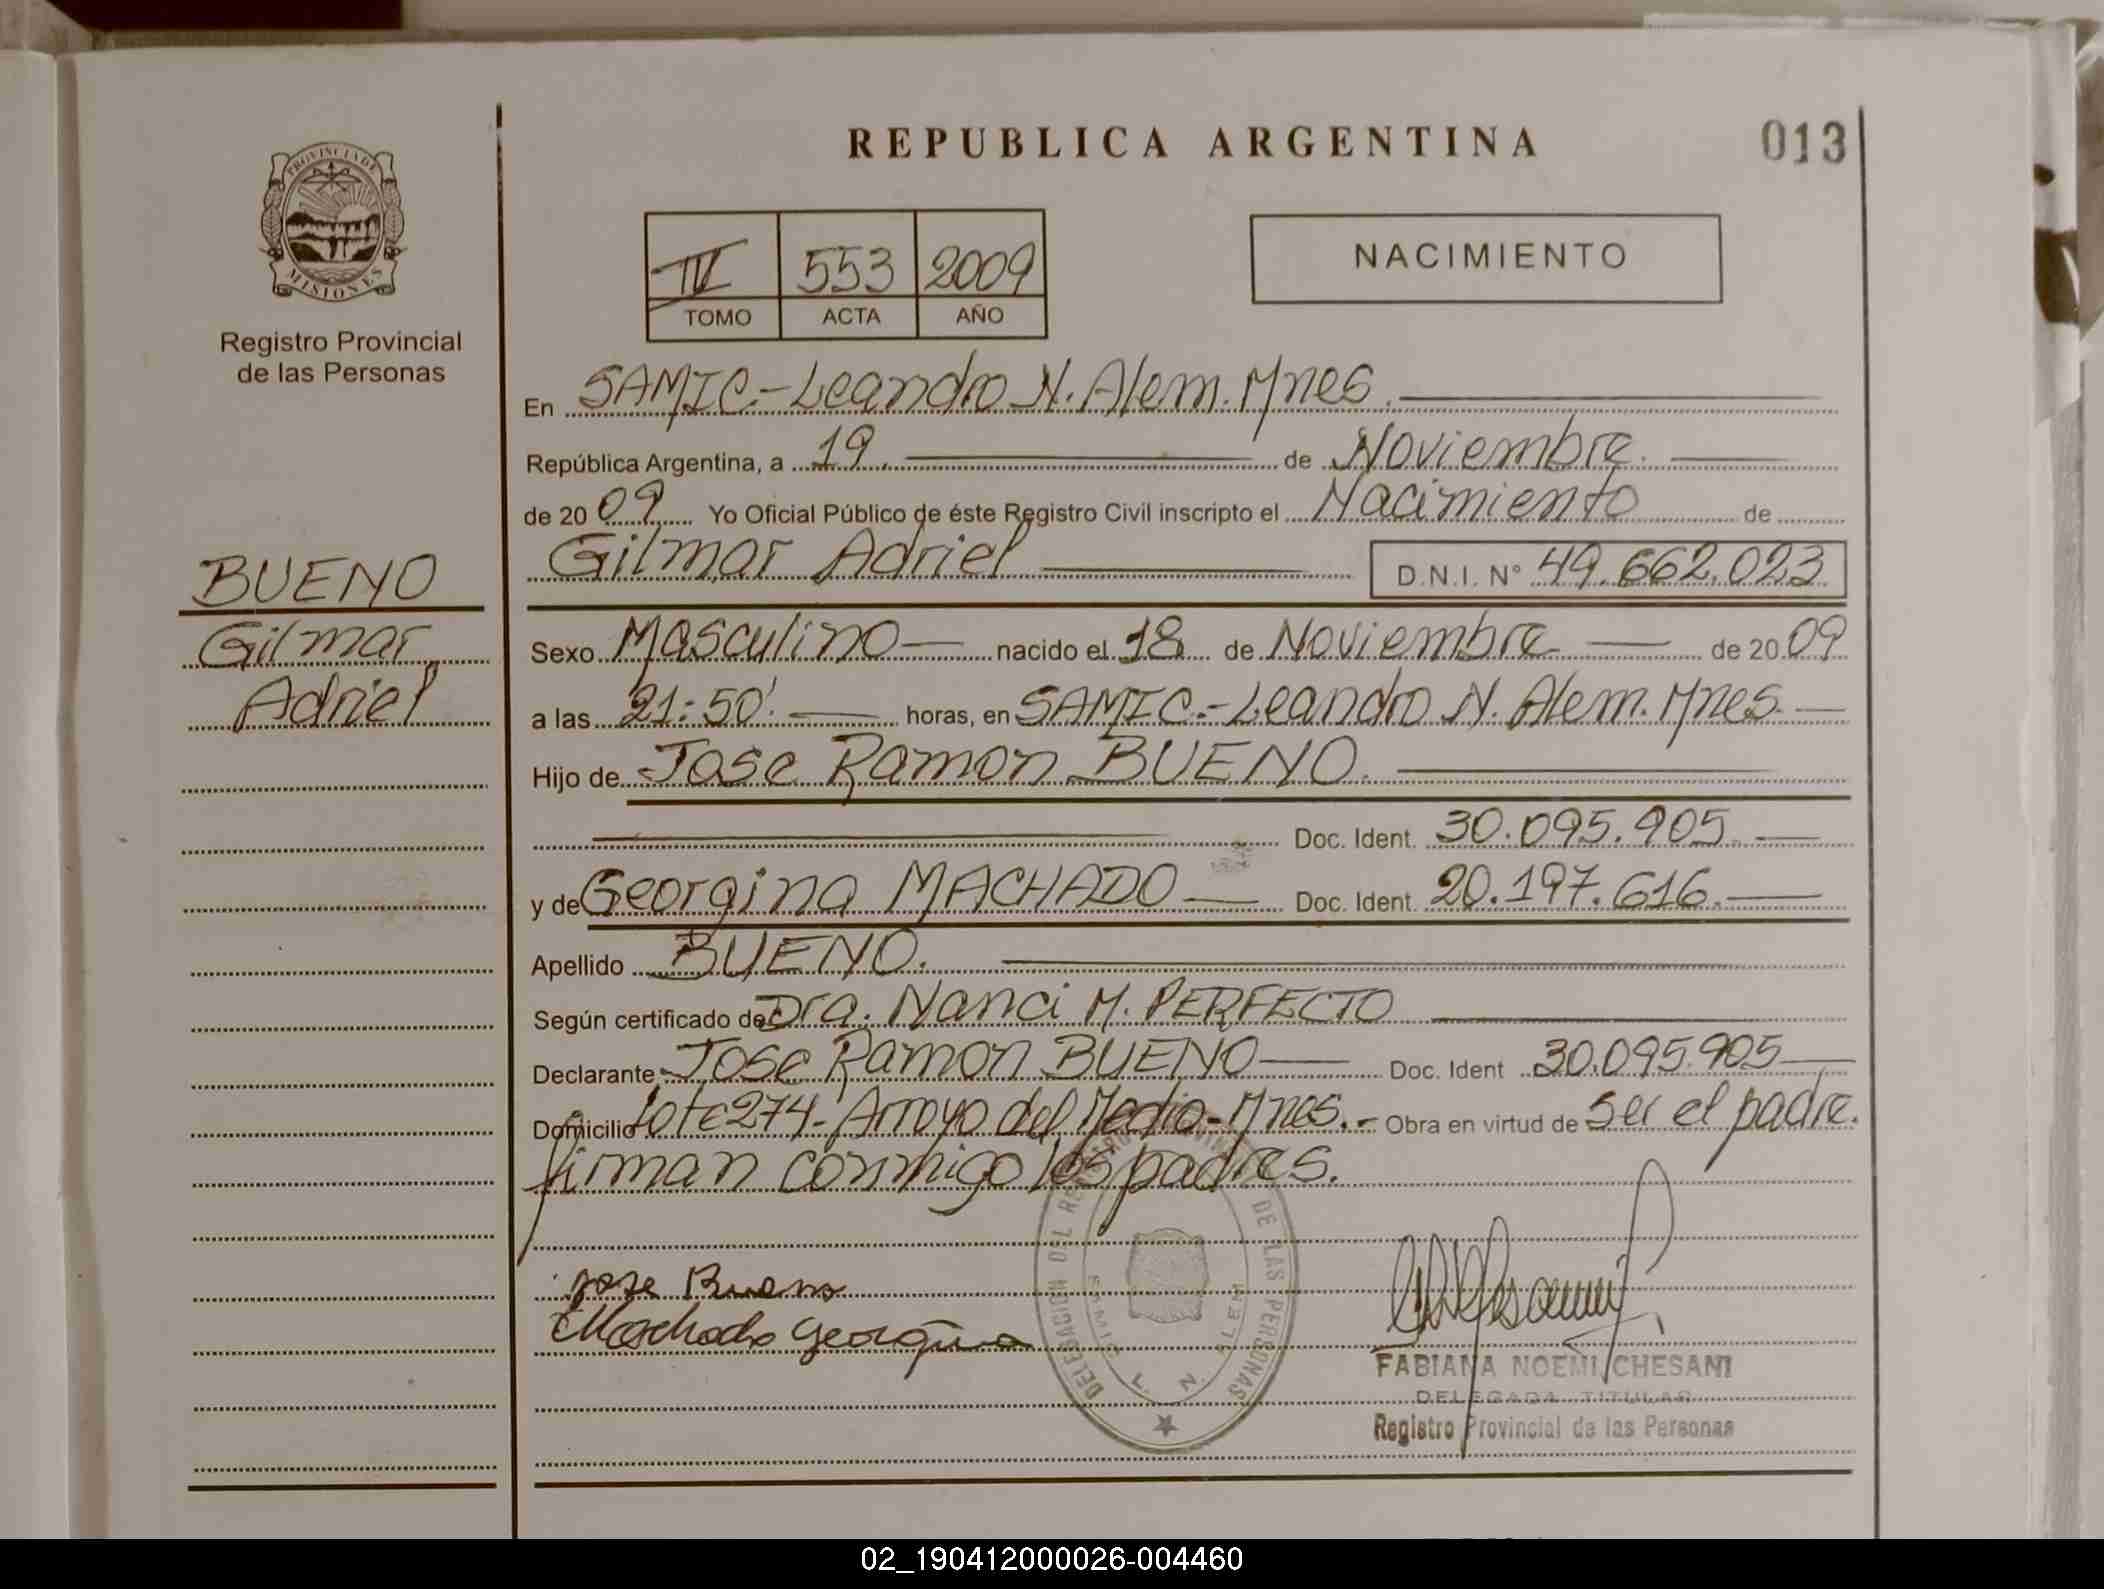 REPUBLICA ARGENTINA
013
PROVINCIA DE
MISIONES
Registro Provincial
de las Personas
IV 553 2009
TOMO ACTA AÑO
NACIMIENTO
En SAMIC.-Leandro N. Alem. Mnes.
República Argentina, a 19. de Noviembre.
de 2009 Yo Oficial Público de éste Registro Civil inscripto el Nacimiento de
Gilmar Adriel D.N.I. N° 49.662.023
BUENO
Gilmar
Adriel
Sexo Masculino nacido el 18 de Noviembre de 2009
a las 21:50' horas, en SAMIC.-Leandro N. Alem. Mnes.
Hijo de Jose Ramon BUENO.
Doc. Ident. 30.095.905.
y de Georgina MACHADO Doc. Ident. 20.197.616.
Apellido BUENO.
Según certificado de Dra. Nanci M. PERFECTO
Declarante Jose Ramon BUENO Doc. Ident 30.095.905
Domicilio lote 274-Arroyo del Medio-Mnes.- Obra en virtud de ser el padre.
firman conmigo los padres.
Jose Bueno
Machado Georgina
DELEGACION DEL REGISTRO PROVINCIAL DE LAS PERSONAS
SAMIC L. N. ALEM
FABIANA NOEMI CHESANI
DELEGADA TITULAR
Registro Provincial de las Personas
02_190412000026-004460